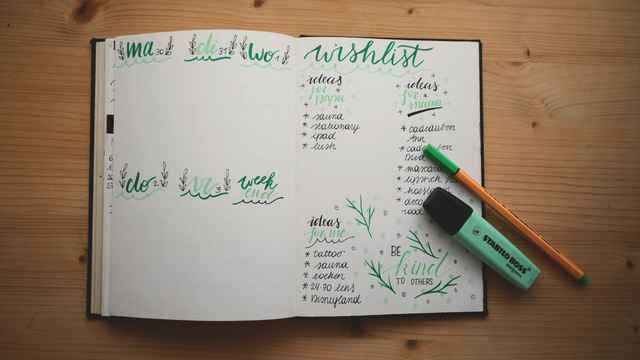 ma 30
di 31
wo 1
do 2
vr 3
week
end
wishlist
ideas
for
papa
* sauna
* stationary
* ipad
* lush
ideas
for
mama
* cadeaubon
* mascara
* lipstick
ideas
for me
* tattoo
* sauna
* boeken
* 24-70 lens
* Disneyland
BE
kind
TO OTHERS
STABILO BOSS